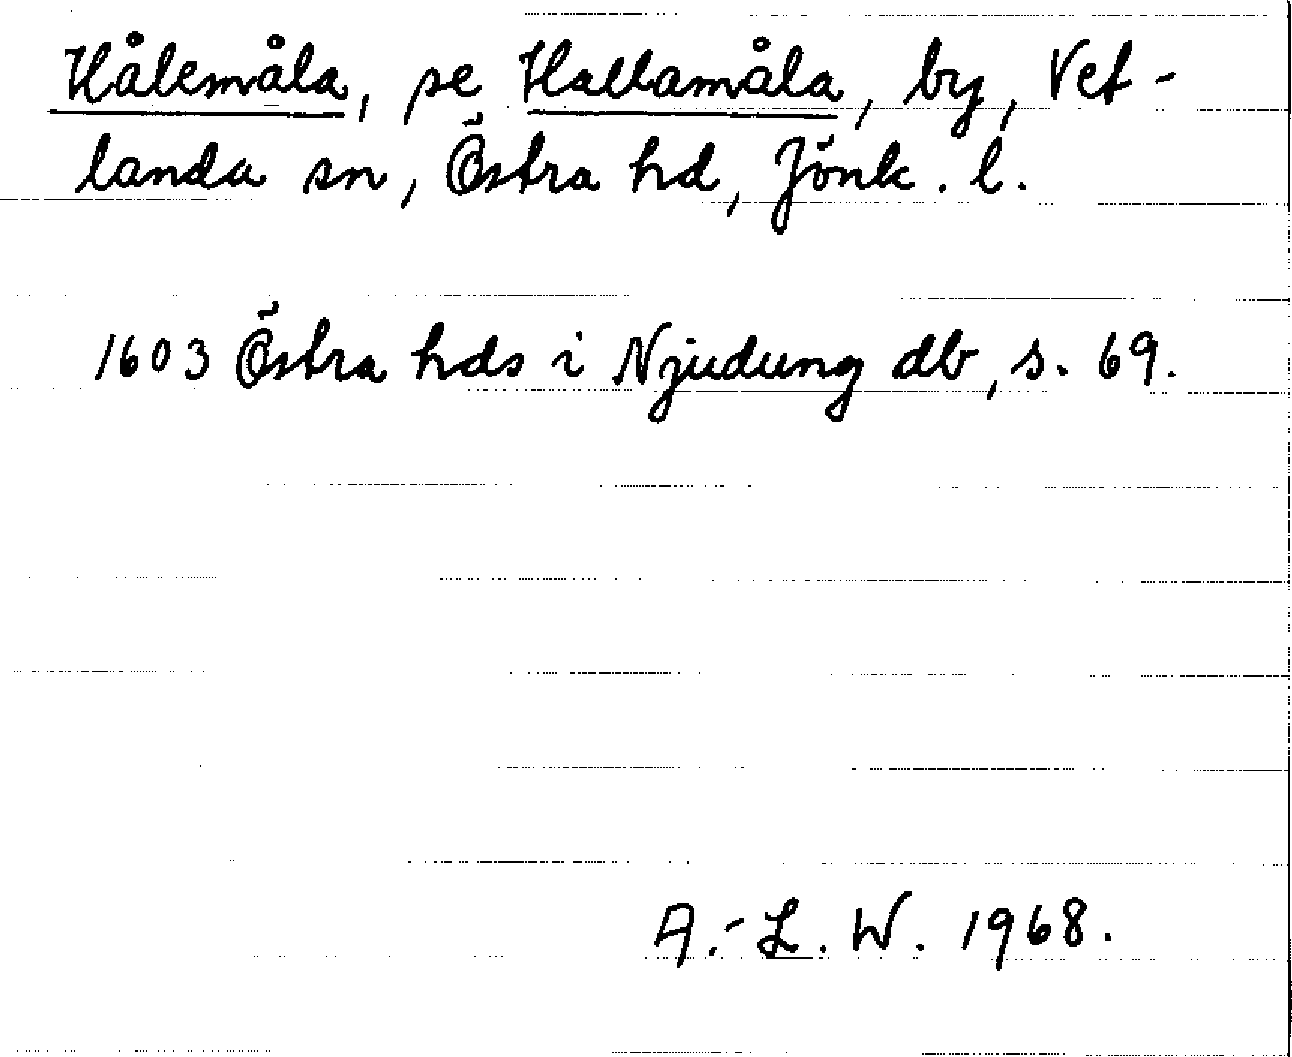 Hålemåla, se Hallamåla, by, Vet-
landa sn, Östra hd, Jönk. l.
1603 Östra hds i Njudung db, s. 69.
A.-L. W. 1968.